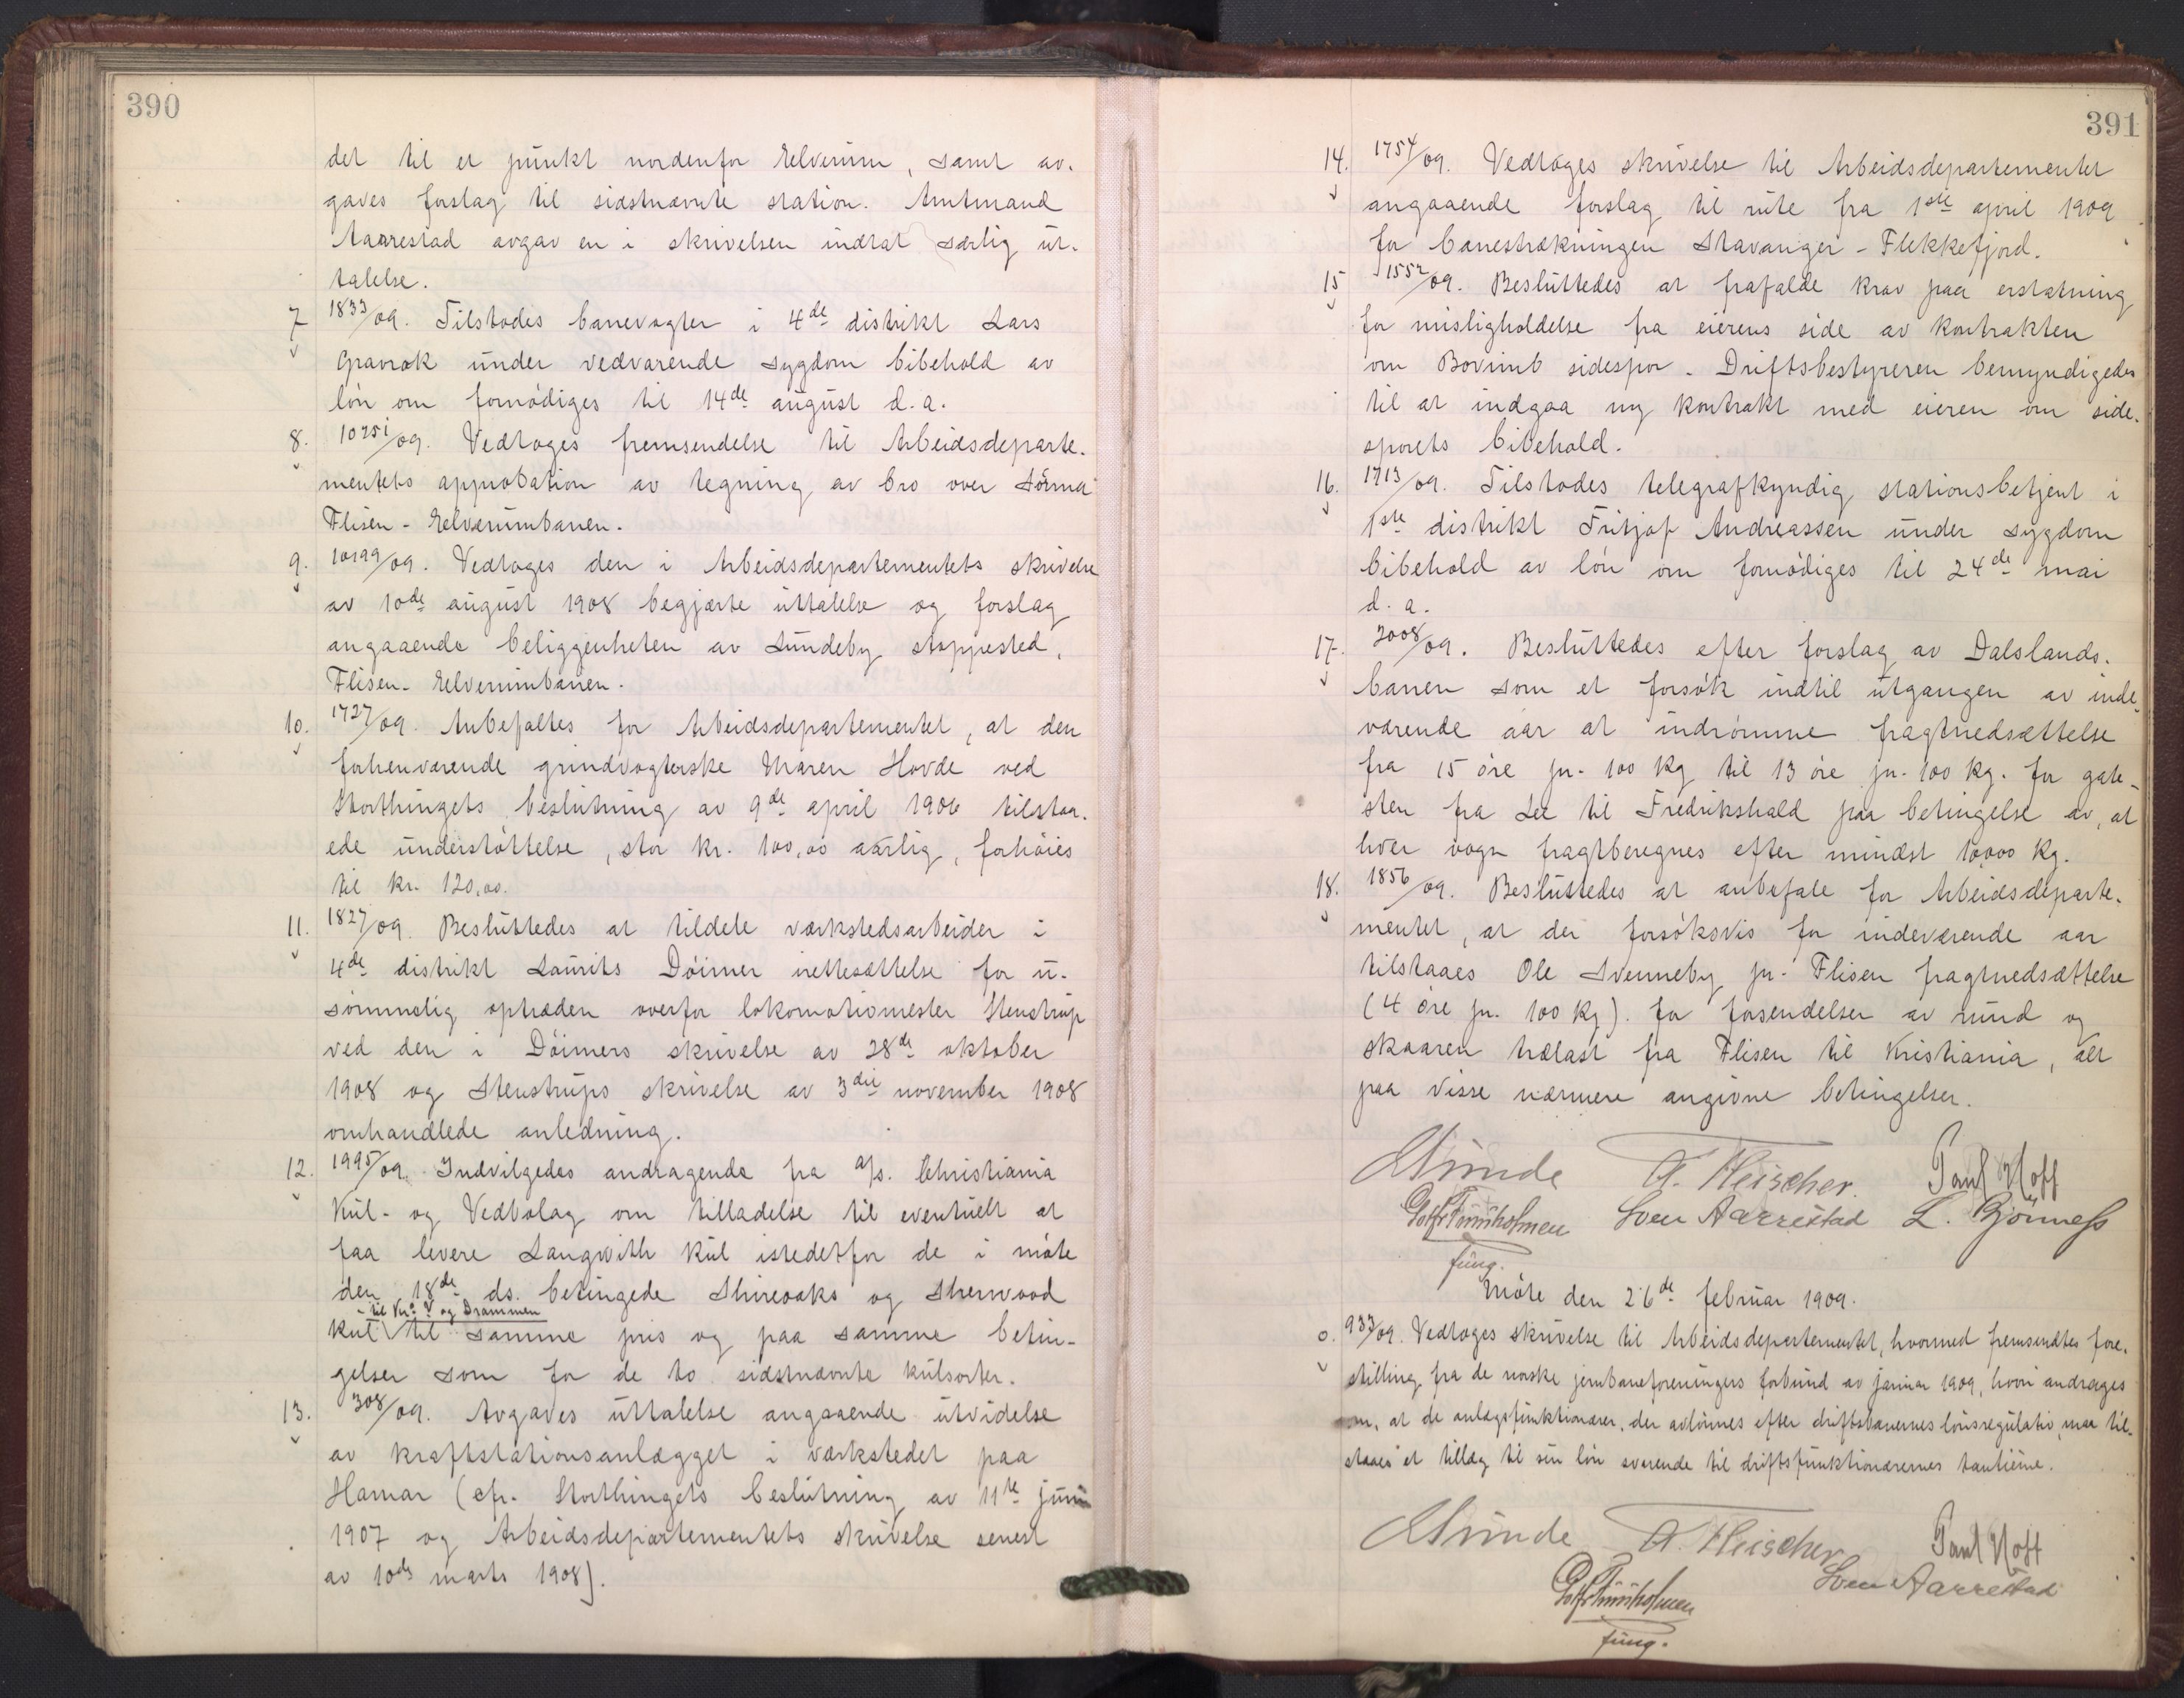 390
det til et punkt nordenfor Elverum, samt av-
gaves forslag til sidstnævnte station. Amtmand
Aarrestad avgav en i skrivelsen indtat særlig ut-
talelse.
7 1833/09. Tilstodes banevogter i 4de distrikt Lars
Gravrok under vedvarende sygdom bibehold av
løn om fornødiges til 14de august d.a.
8. 10251/09. Vedtoges fremsendelse til Arbeidsdeparte-
mentets approbation av tegning av bro over
Flisen-Elverumbanen.
9. 10199/09. Vedtoges den i Arbeidsdepartementets skrivelse
av 10de august 1908 begjærte uttalelse og forslag
angaaende beliggenheten av Sundeby stoppested,
Flisen-Elverumbanen.
10. 1727/09. Anbefaltes for Arbeidsdepartementet, at den
forhenværende grindvogterske Maren Hovde ved
Storthingets beslutning av 9de april 1906 tilstaa-
ede understøttelse, stor kr. 100,00 aarlig, forhøies
til kr. 120,00.
11. 1827/09. Besluttedes at tildele verkstedsarbeider i
4de distrikt Laurits Döimer irettesættelse for u-
sømmelig optræden overfor lokomotivmester Stenstrup
ved den i Döimers skrivelse av 28de oktober
1908 og Stenstrups skrivelse av 3die november 1908
omhandlede anledning.
12. 1995/09. Indvilgedes andragende fra A/s. Christiania
Kul- og Vedbolag om tilladelse til eventuelt at
faa levere Langwith Kul istedetfor de i møte
den 18de ds. betingede Shireoaks og Sherwood
til Kra V og Drammen
kul til samme pris og paa samme betin-
gelser som for de to sidstnævnte kulsorter.
13. 308/09. Avgaves uttalelse angaaende utvidelse
av kraftstationsanlægget i verkstedet paa
Hamar (cfr. Storthingets beslutning av 11te juni
1907 og Arbeidsdepartementets skrivelse senest
av 10de marts 1908).
391
14. 1754/09. Vedtoges skrivelse til Arbeidsdepartementet
angaaende forslag til rute fra 1ste april 1909
for banestrækningen Stavanger-Flekkefjord.
15 1552/09. Besluttedes at frafalde krav paa erstatning
for misligholdelse fra eierens side av kontrakten
om Bovimb sidespor. Driftsbestyreren bemyndigedes
til at indgaa ny kontrakt med eieren om side-
sporets bibehold.
16. 1713/09. Tilstodes telegrafkyndig stationsbetjent i
1ste distrikt Fritjof Andreassen under sygdom
bibehold av løn om fornødiges til 24de mai
d.a.
17. 2008/09. Besluttedes efter forslag av Dalslands-
banen som et forsøk indtil utgangen av inde-
værende aar at indrømme fragtnedsættelse
fra 15 øre pr. 100 kg til 13 øre pr. 100 kg. for gate-
sten fra Lee til Fredrikshald paa betingelse av, at
hver vogn fragtberegnes efter mindst 10000 kg.
18. 1856/09. Besluttedes at anbefale for Arbeidsdeparte-
mentet, at der forsøksvis for indeværende aar
tilstaaes Ole Svenneby pr. Flisen fragtnedsættelse
(4 øre pr. 100 kg). for forsendelser av rund og
skaaren trælast fra Flisen til Kristiania, alt
paa visse nærmere angivne betingelser.
A. Fleischer. Paul Hoff
Sven Aarrestad L. Bjørness
fung.
Møte den 26de februar 1909.
0. 933/09. Vedtoges skrivelse til Arbeidsdepartementet, hvormed fremsendtes fore-
stilling fra de norske jernbaneforeningers forbund av januar 1909, hvori andrages
om, at de anlægsfunktionærer, der avlønnes efter driftsbanernes lønsregulativ, maa til-
staaes et tillæg til sin løn svarende til driftsfunktionærernes tantième.
A. Fleischer Paul Hoff
Sven Aarrestad
fung.